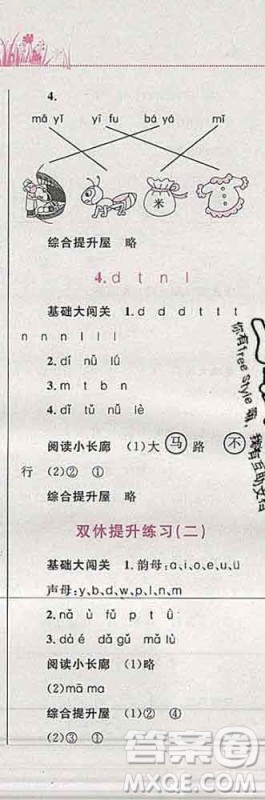 4.
mā yǐ yī fu bá yá mǐ
米
综合提升屋 略
4.d t n l
基础大闯关 1.d d d t t t
n n n l l l
2.dǐ nǚ lú
3.m t b n
4.dǐ tǔ nǚ lè
阅读小长廊 (1)大 马 路 不
行 (2)② ①
综合提升屋 略
双休提升练习(二)
基础大闯关 1.韵母:a、i、o、e、u、ü
声母:y、b、d、w、p、l、n、m
2.nǎ ù fú p t û
3.dà é dǎ gǔ mǎ lù
阅读小长廊 (1)略
(2)mā ma
综合提升屋 (1)② ④
(2)③ ①
你有free Style嘛,
我有互助文档
答案圈
MXQE.COM